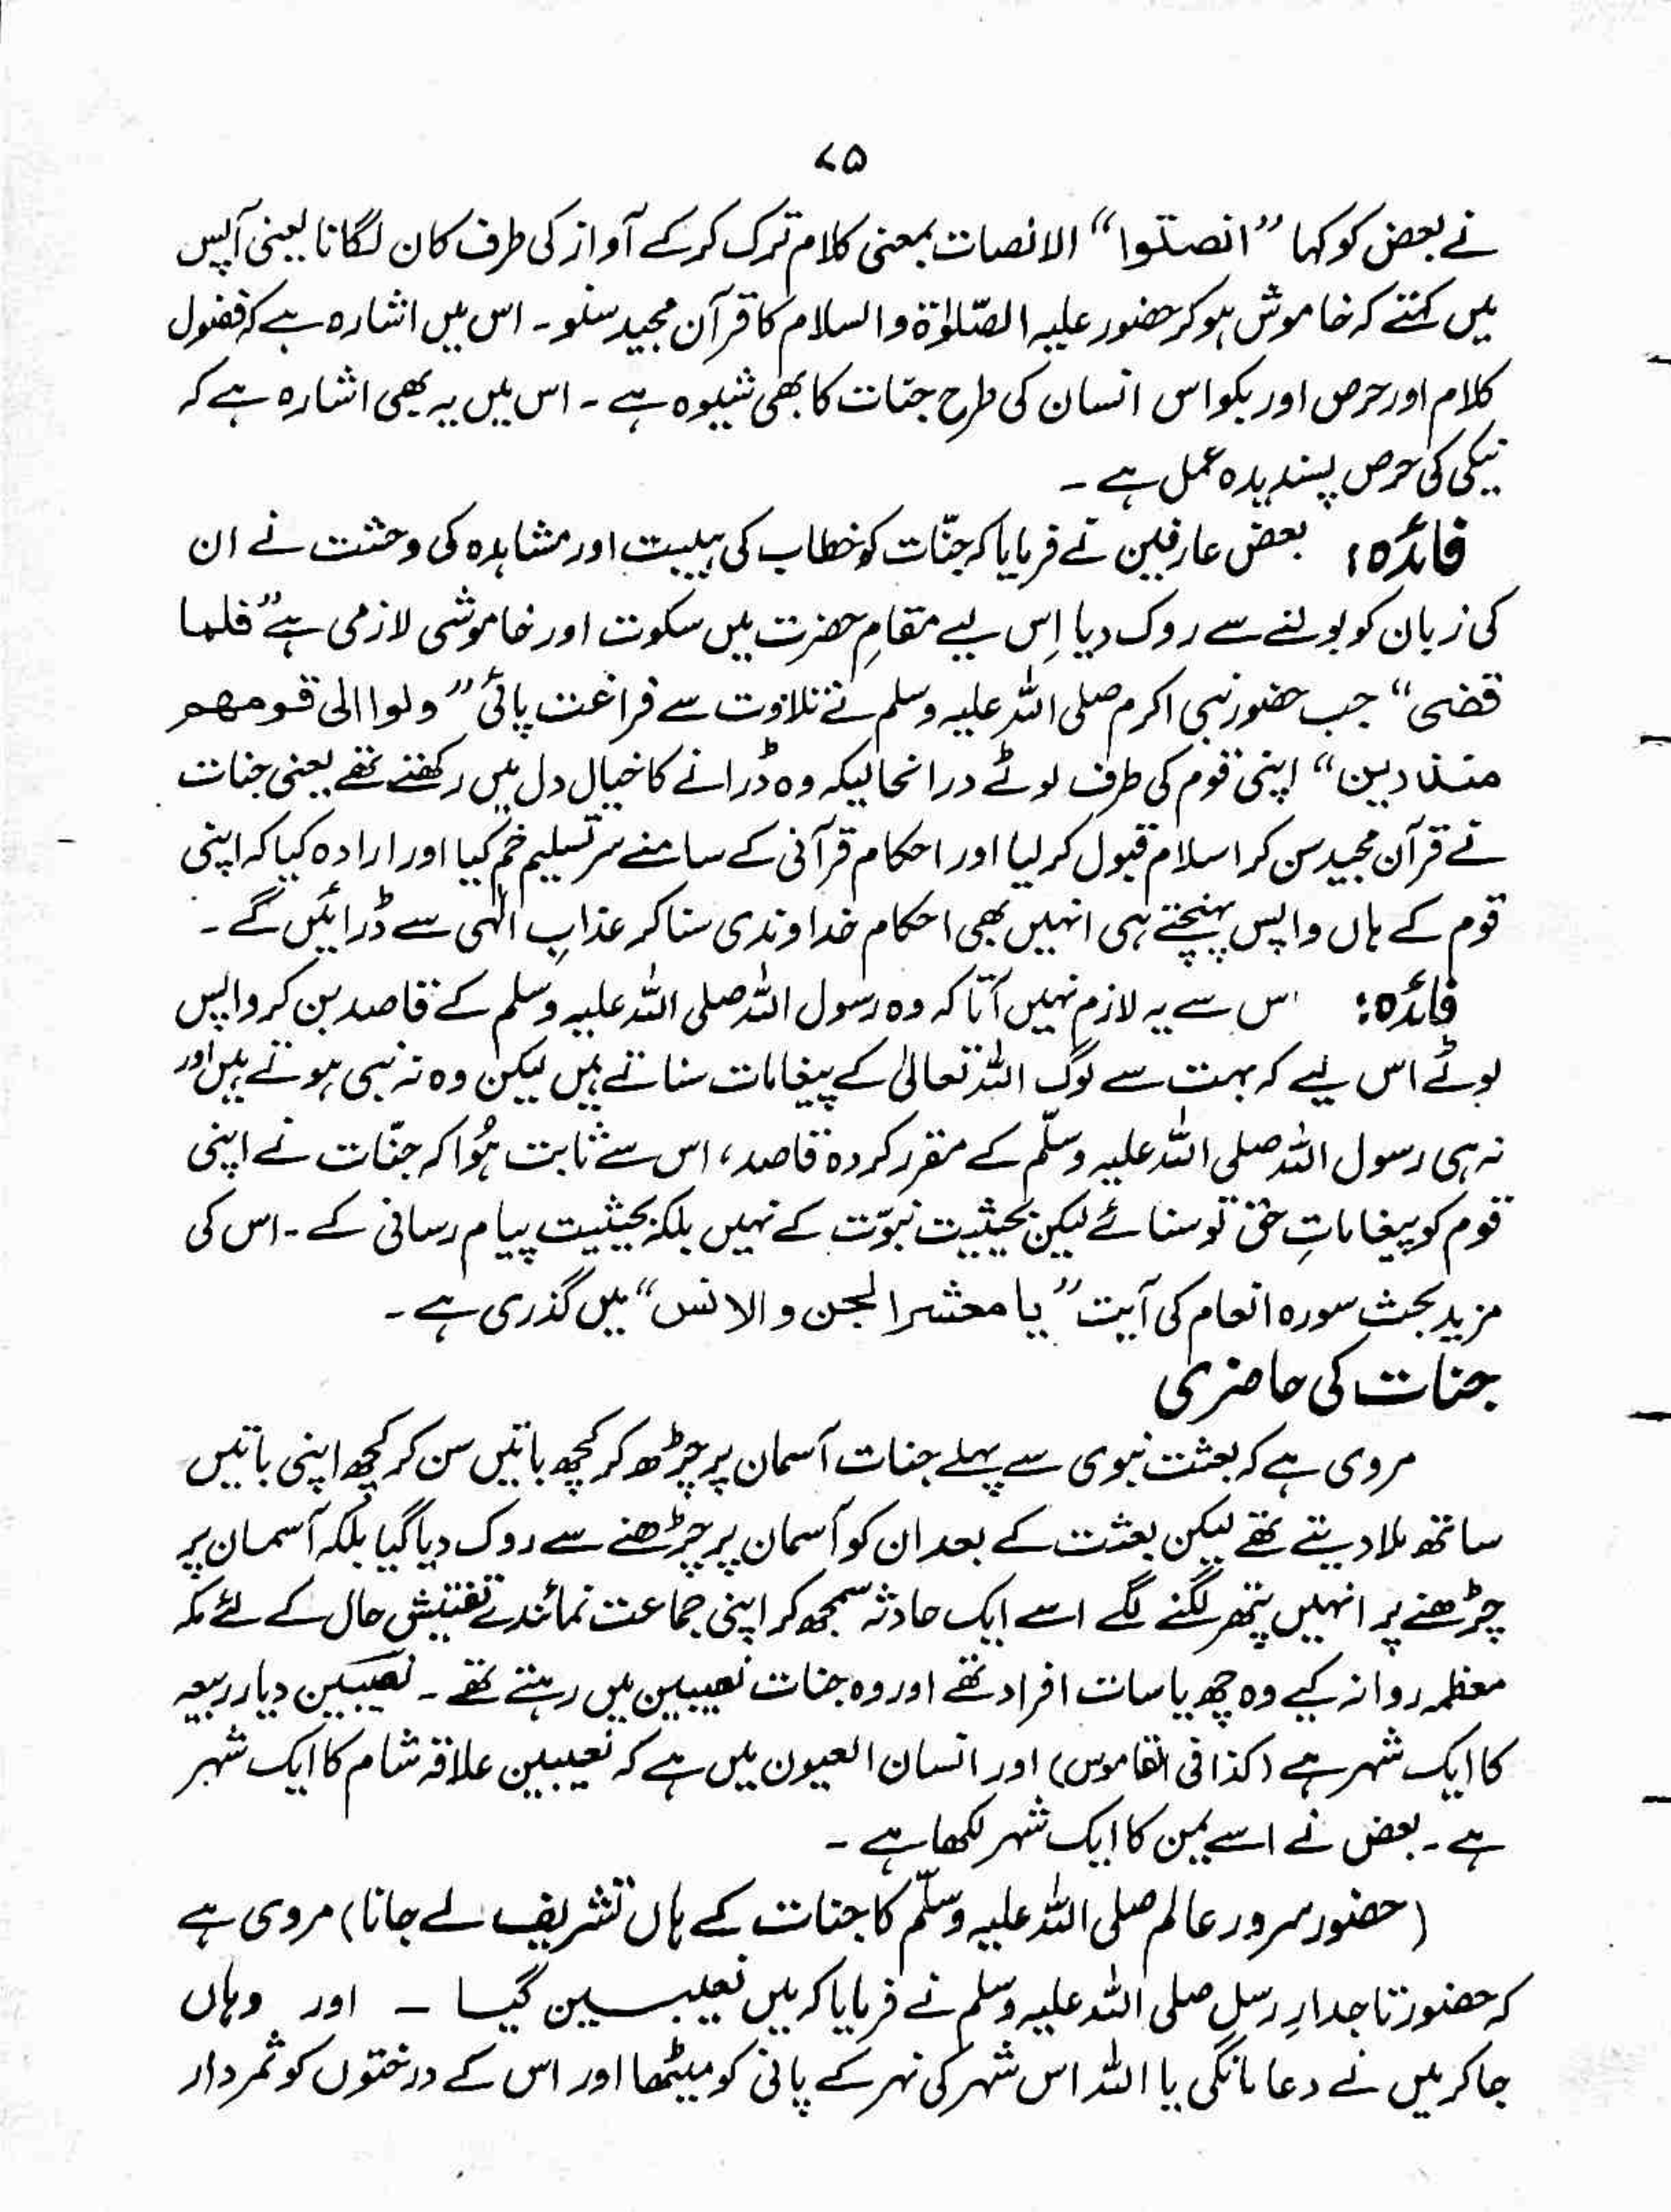 ۷۵
نے بعض کو کہا ”انصتوا“ الانصات بمعنی کلام ترک کرکے آواز کی طرف کان لگانا یعنی آپس
میں کہتے کہ خاموش ہو کر حضور علیہ الصّلوٰۃ والسلام کا قرآن مجید سنو۔ اس میں اشارہ ہے کہ فضول
کلام اور حرص اور بکواس انسان کی طرح جنّات کا بھی شیوہ ہے۔ اس میں یہ بھی اشارہ ہے کہ
نیکی کی حرص پسندیدہ عمل ہے۔
فائدہ: بعض عارفین نے فرمایا کہ جنّات کو خطاب کی ہیبت اور مشاہدہ کی وحشت نے ان
کی زبان کو بولنے سے روک دیا اِس لیے مقامِ حضرت میں سکوت اور خاموشی لازمی ہے ”فلما
قضی“ جب حضور نبی اکرم صلی اللہ علیہ وسلم نے تلاوت سے فراغت پائی ”ولوا الی قومهم
منذرین“ اپنی قوم کی طرف لوٹے درانحالیکہ وہ ڈرانے کا خیال دل میں رکھتے تھے یعنی جنات
نے قرآن مجید سن کر اسلام قبول کر لیا اور احکام قرآنی کے سامنے سر تسلیم خم کیا اور ارادہ کیا کہ اپنی
قوم کے ہاں واپس پہنچتے ہی انہیں بھی احکام خداوندی سنا کر عذابِ الٰہی سے ڈرائیں گے۔
فائدہ: اس سے یہ لازم نہیں آتا کہ وہ رسول اللہ صلی اللہ علیہ وسلم کے قاصد بن کر واپس
لوٹے اس لیے کہ بہت سے لوگ اللہ تعالیٰ کے پیغامات سناتے ہیں لیکن وہ نہ نبی ہوتے ہیں اور
نہ ہی رسول اللہ صلی اللہ علیہ وسلّم کے مقرر کردہ قاصد، اس سے ثابت ہُوا کہ جنّات نے اپنی
قوم کو پیغاماتِ حق تو سنائے لیکن بحیثیت نبوّت کے نہیں بلکہ بحیثیت پیام رسانی کے۔ اس کی
مزید بحث سورہ انعام کی آیت ”یا معشر الجن والانس“ میں گذری ہے۔
جنات کی حاضری
مروی ہے کہ بعثت نبوی سے پہلے جنات آسمان پر چڑھ کر کچھ باتیں سن کر کچھ اپنی باتیں
ساتھ ملا دیتے تھے لیکن بعثت کے بعد ان کو آسمان پر چڑھنے سے روک دیا گیا بلکہ آسمان پر
چڑھنے پر انہیں پتھر لگنے لگے اسے ایک حادثہ سمجھ کر اپنی جماعت نمائندے تفتیش حال کے لئے مکہ
معظمہ روانہ کیے وہ چھ یا سات افراد تھے اور وہ جنات نصیبین میں رہتے تھے۔ نصیبین دیار ربیعہ
کا ایک شہر ہے (کذا فی القاموس) اور انسان العیون میں ہے کہ نصیبین علاقہ شام کا ایک شہر
ہے۔ بعض نے اسے یمن کا ایک شہر لکھا ہے۔
(حضور سرور عالم صلی اللہ علیہ وسلّم کا جنات کے ہاں تشریف لے جانا) مروی ہے
کہ حضور تاجدارِ رسل صلی اللہ علیہ وسلم نے فرمایا کہ میں نصیبسین گیا ۔ اور وہاں
جا کر میں نے دعا مانگی یا اللہ اس شہر کی نہر کے پانی کو میٹھا اور اس کے درختوں کو ثمردار